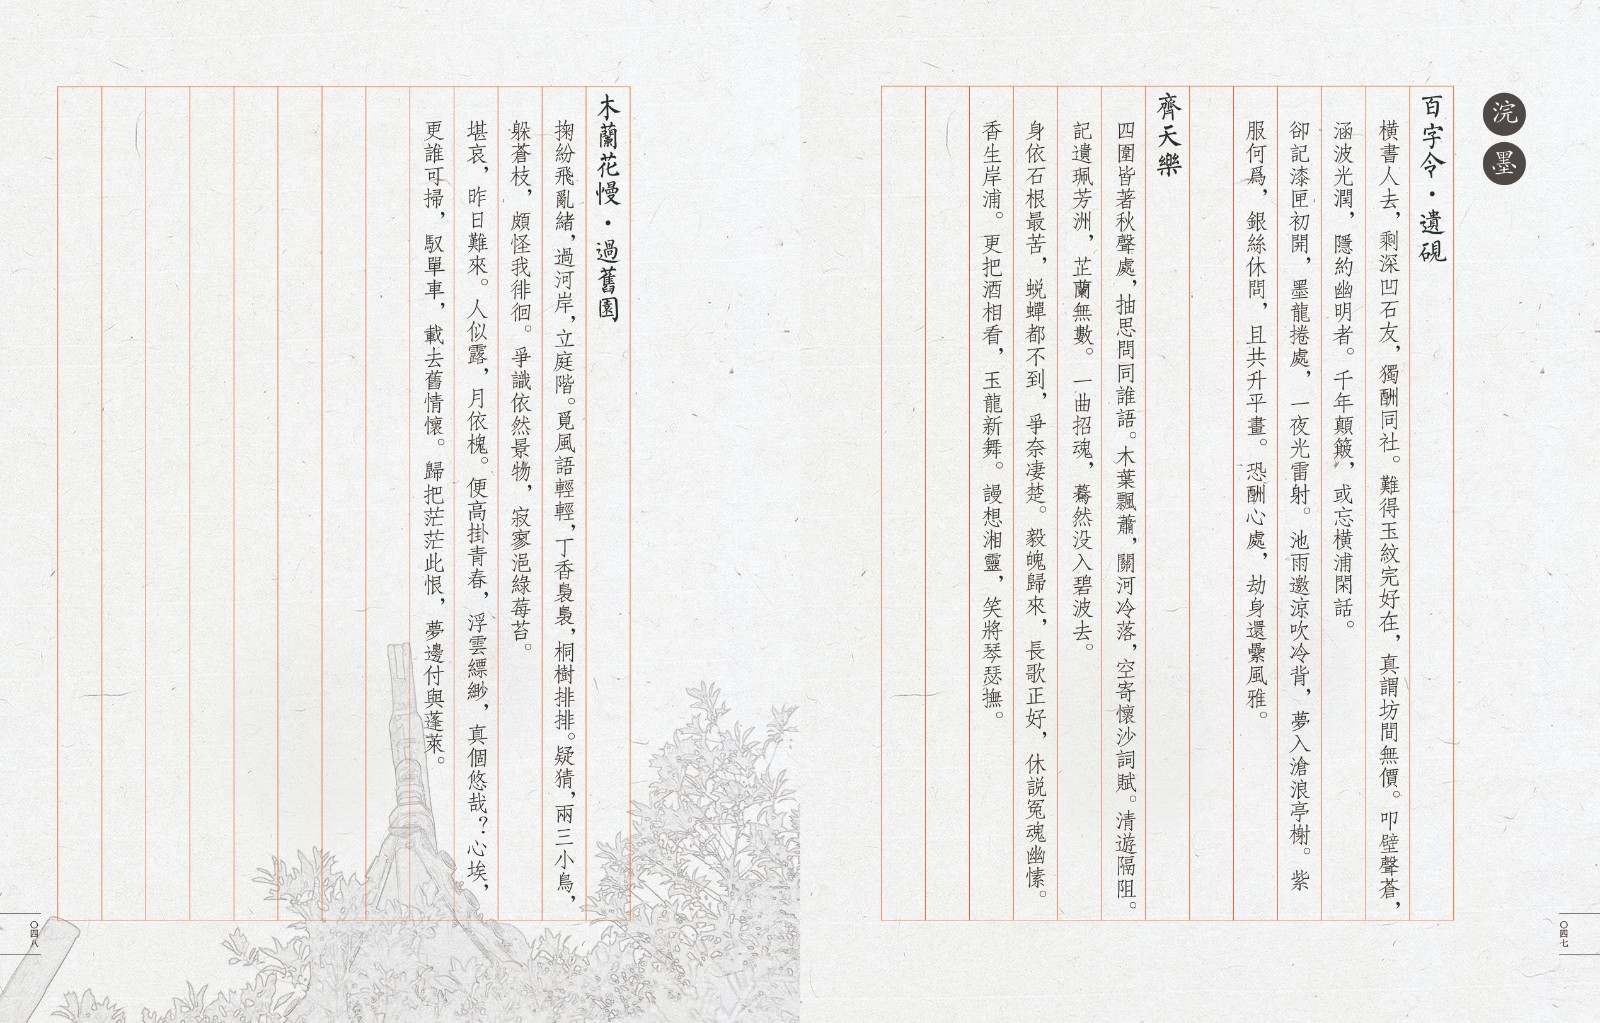 浣墨
百字令·遺硯
橫書人去，剩深凹石友，獨酬同社。難得玉紋完好在，真謂坊間無價。叩壁聲蒼，
涵波光潤，隱約幽明者。千年顛簸，或忘橫浦閑話。
卻記漆匣初開，墨龍捲處，一夜光雷射。池雨邀涼吹冷背，夢入滄浪亭榭。紫
服何爲，銀絲休問，且共升平畫。恐酬心處，劫身還纍風雅。
齊天樂
四圍皆著秋聲處，抽思問同誰語。木葉飄蕭，關河冷落，空寄懷沙詞賦。清遊隔阻。
記遺珮芳洲，芷蘭無數。一曲招魂，驀然没入碧波去。
身依石根最苦，蜕蟬都不到，爭奈凄楚。毅魄歸來，長歌正好，休説冤魂幽愫。
香生岸浦。更把酒相看，玉龍新舞。謾想湘靈，笑將琴瑟撫。
〇四七
木蘭花慢·過舊園
掬紛飛亂緒，過河岸，立庭階。覓風語輕輕，丁香裊裊，桐樹排排。疑猜，兩三小鳥，
躲蒼枝，頗怪我徘徊。爭識依然景物，寂寥浥綠莓苔。
堪哀，昨日難來。人似露，月依槐。便高掛青春，浮雲縹緲，真個悠哉？心埃，
更誰可掃，馭單車，載去舊情懷。歸把茫茫此恨，夢邊付與蓬萊。
〇四八